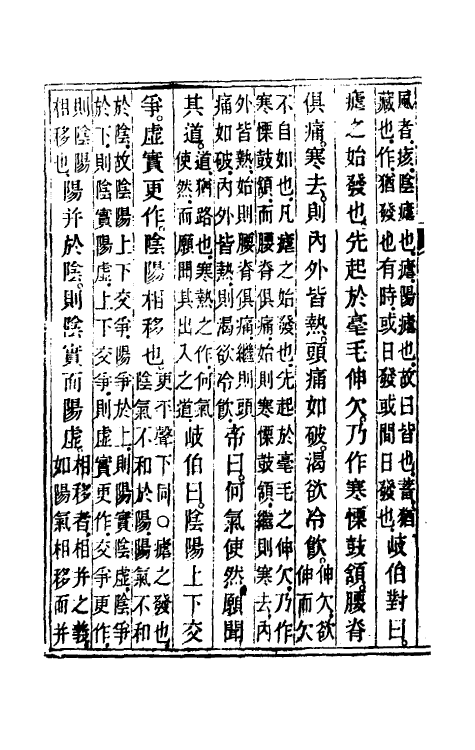 風者痎陰瘧也瘧陽瘧也故曰皆也蓄猶
藏也作猶發也有時或日發或間日發也岐伯對曰
瘧之始發也先起於毫毛伸欠乃作寒慄鼓頷腰脊
俱痛寒去則內外皆熱頭痛如破渴欲冷飲伸欠欲
伸而欠
不自如也凡瘧之始發也先起於毫毛之伸欠乃作
寒慄鼓頷而腰脊俱痛始則寒慄鼓頷繼則寒去內
外皆熱始則腰脊俱痛繼則頭
痛如破內外皆熱則渴欲冷飲帝曰何氣使然願聞
其道道猶路也寒熱之作何氣
使然而願聞其出入之道岐伯曰陰陽上下交
爭虛實更作陰陽相移也更平聲下同○瘧之發也
陰氣不和於陽陽氣不和
於陰故陰陽上下交爭陽爭於上則陽實陰虛陰爭
於下則陰實陽虛上下交爭則虛實更作交爭更作
則陰陽
相移也陽并於陰則陰實而陽虛相移者相并之義
如陽氣相移而并